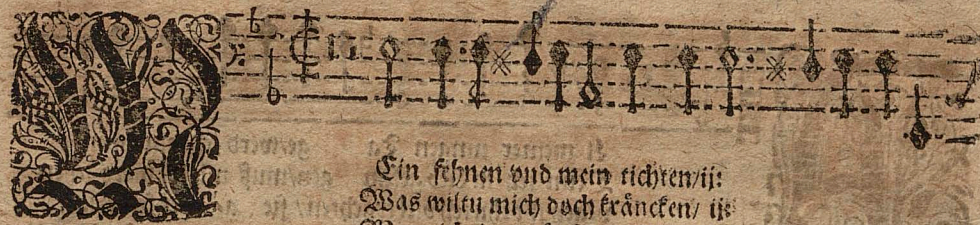 MEin sehnen vnd mein tichten/ ij:
Was wiltu mich doch kräncken/ ij: